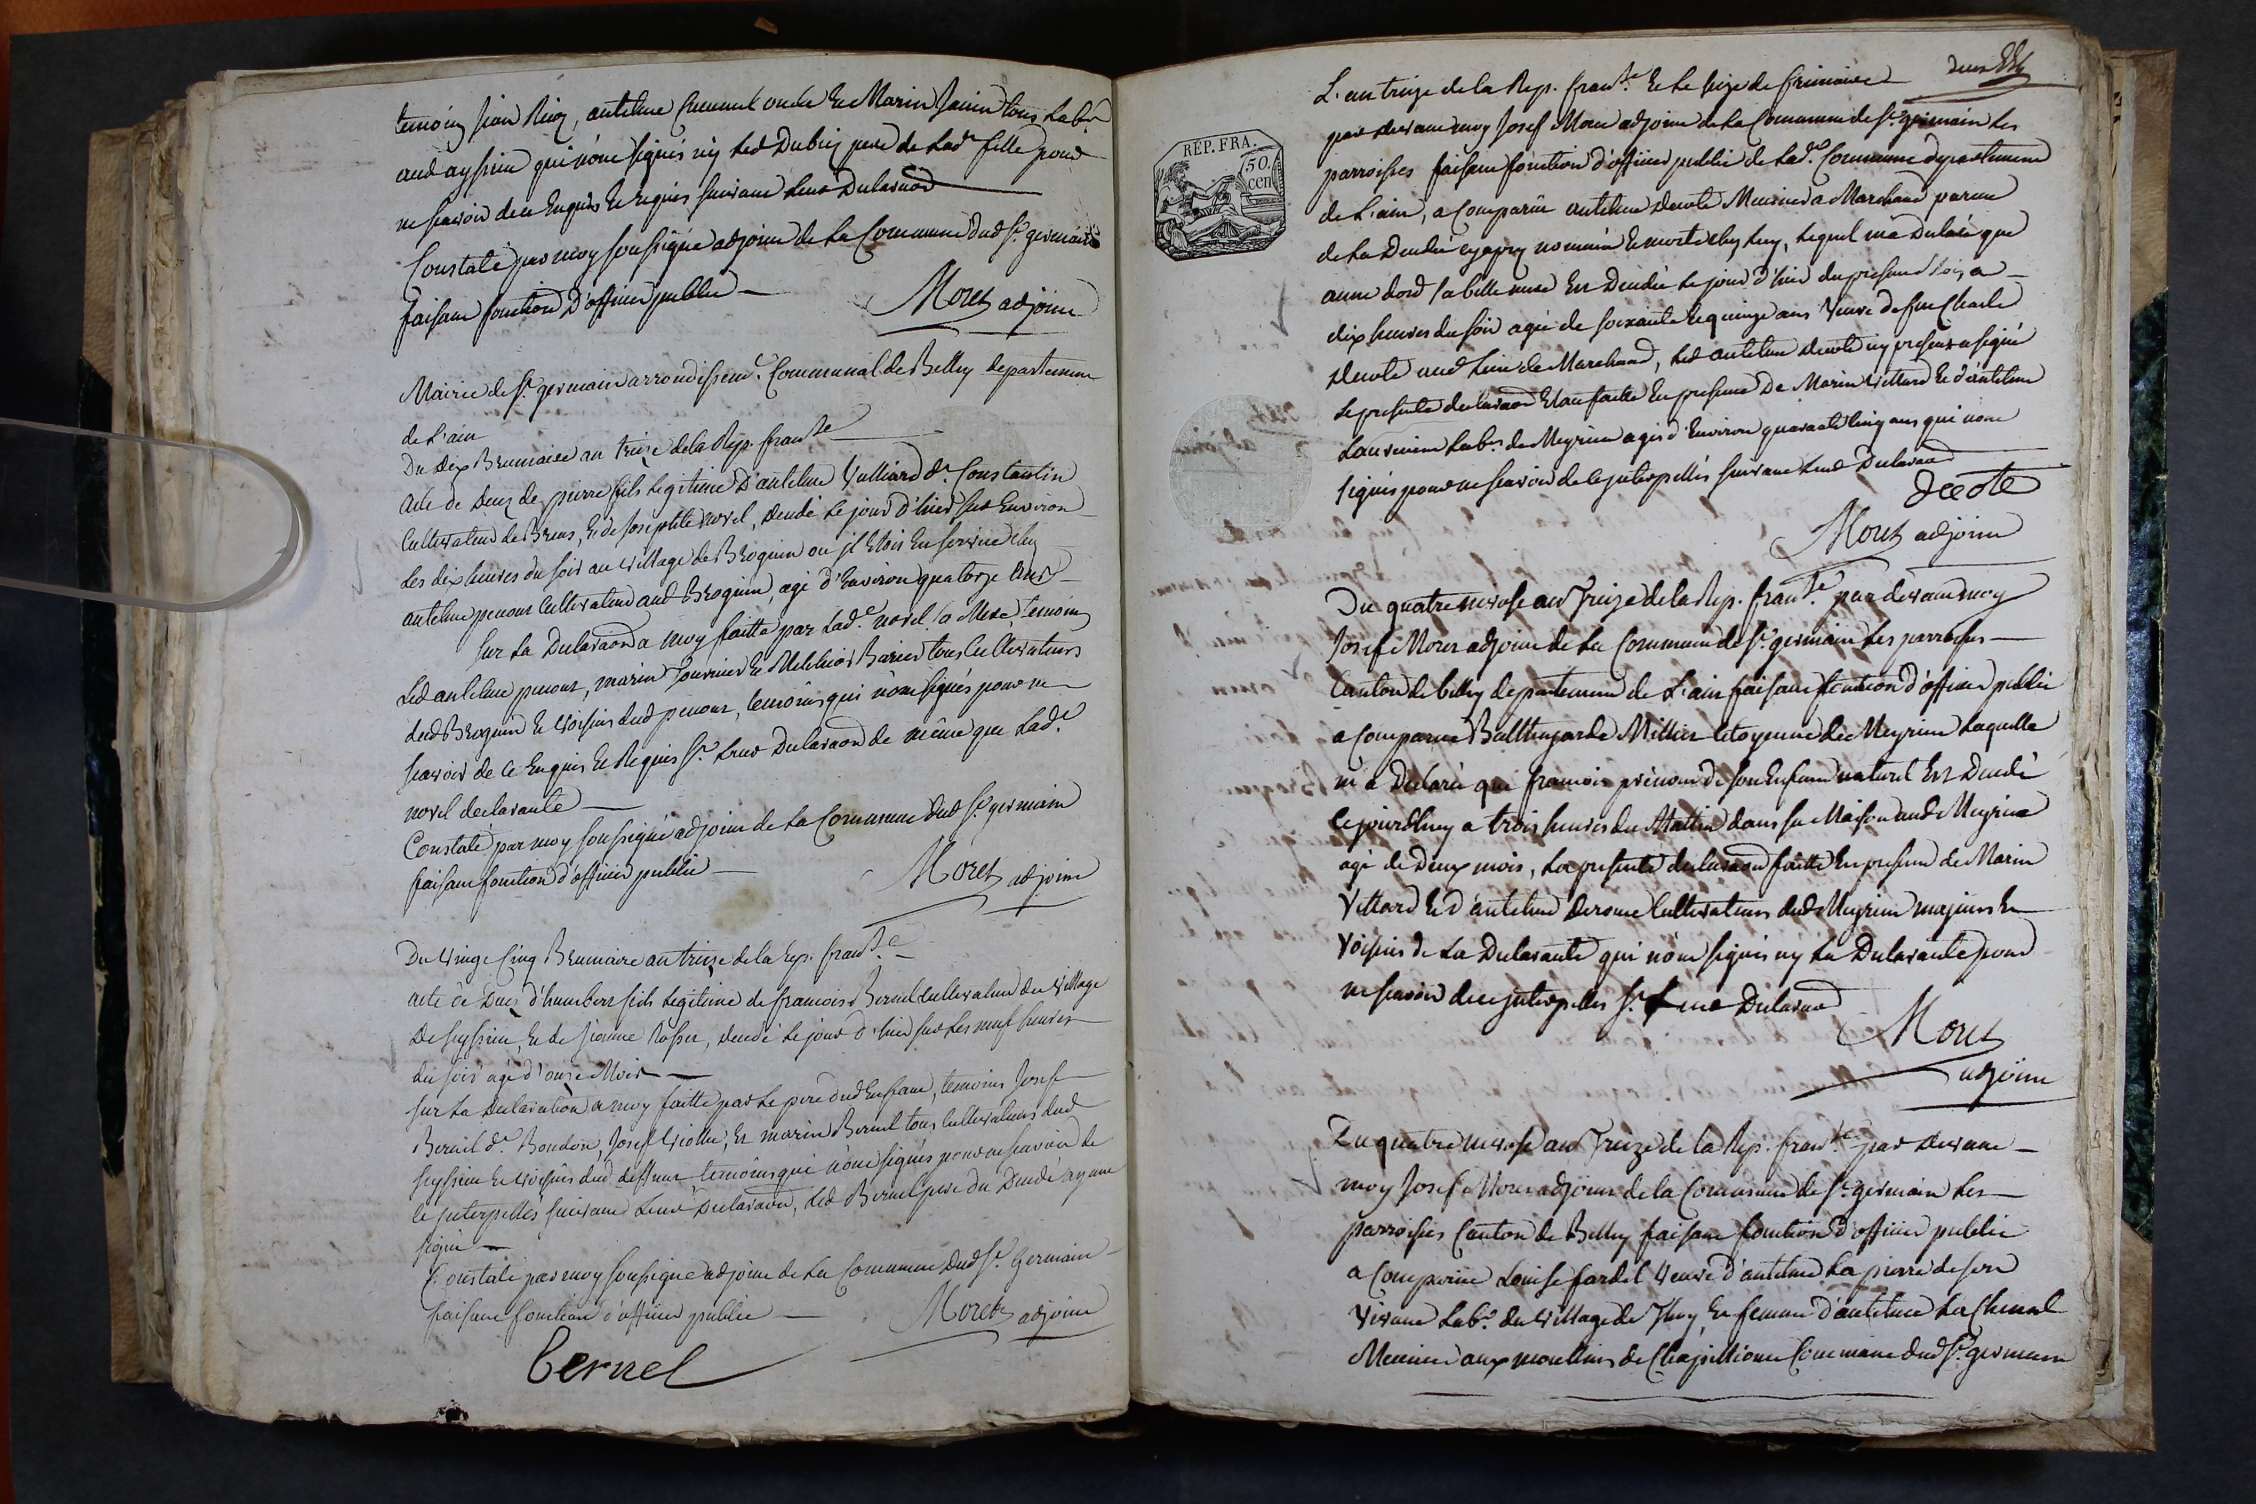 temoins jean Rey, antelme oncle Et Marin Janin tous Lab.rs
aud ayssieu qui n'ont signés ny led Dubiez pere de Lad.e fille pour
ne scavoir de ce Enquis Et requis suivant leur Declaraon
Constaté par moy soussigné adjoint de La Commune dud St. germain
faisant fonction D'officier public
Moret adjoint
Mairie de St. germain arrondissem.t Communal de Belley departement
de L'ain
Du dix Brumaire an treize de la Rep. fran.se
acte de decez de pierre fils Legitime D'antelme Vulliard d.t Constantin
Cultivateur de Brens, Et de josephte morel, decedé Le jour d'hier sur Environ
Les dix heures du soir au village de Brognin ou jl Etois En service chez
antelme penour Cultivateur aud Brognin, agé d'Environ quatorze ans
sur La Declaraon a moy faitte par Lad.e morel sa Mere, temoins
Led antelme penour, marin fournier Et Melchior Barier tous Cultivateurs
dud Brognin Et voisins dud penour, temoins qui n'ont signés pour ne
scavoir de ce Enquis Et Requis St. leur Declaraon de même que Lad.e
morel declarante
Constaté par moy soussigné adjoint de La Commune dud St. germain
faisant fonction d'officier public
Moret adjoint
Du vingt Cinq Brumaire an treize de la rep. fran.se
acte de Decez d'humbert fils Legitime de francois Bernel Cultivateur du village
De seyssieu, Et de jeanne Rosset, decedé Le jour d'hier sur Les neuf heures
du soir agé d'onze Mois
sur La Declaration a moy faitte par Le pere dud Enfant, temoins Josef
Bernel d.t Boudon, Josef Violliet, Et marin Bernel tous Cultivateurs dud
seyssieu Et voisins dud deffunt temoins qui n'ont signés pour ne scavoir de
ce jnterpellés suivant Leur Declaraon, Led Bernel pere du Decedé ayant
signé
Constaté par moy soussigné adjoint de La Commune Dud St. Germain
faisant fonction d'officier public
Moret adjoint
Bernel
REP. FRA.
50
cen
L'an treize de la Rep. fran.se Et Le seize de frimaire
par devant moy Josef Moret adjoint de La Commune de St. germain Les
parroisses faisant fonction d'officier public de Lad.e Commune departement
de L'ain, a Comparu antelme decote Meunier a Marchand parent
de La Decedée cy apres nommée Et morte chez Luy, Lequel m'a Declaré que
anne sa belle mere Est Decedée Le jour d'hier du present mois a
dix heures du soir agée de soixante Et quinze ans Veuve de feu Charle
Decote aud Lieu de Marchand, Led antelme decote icy present a signé
Le presente declaraon Etant faitte En presence De Marin Villard Et d'antelme
Lab.rs de Meyrieu agés d'Environ quarante Cinq ans qui n'ont
signés pour ne scavoir de ce jnterpellés suivant Leur Declaraon
decote
Moret adjoint
Du quatre nivose an Treize de la Rep. fran.se par devant moy
Josef Moret adjoint de La Commune de St. germain Les parroisses
Canton de belley departement de L'ain faisant fonction d'officier public
a Comparue Balthazarde Millier Citoyenne de Meyrieu Laquelle
m'a Declaré que francois prénom de son Enfant naturel Est Decedé
Ce jourdhuy a trois heures du Mattin dans sa Maison aud Meyrieu
agé de Deux mois, La presente declaraon faitte En presence de Marin
Villard Et d'antelme Derome Cultivateurs dud Meyrieu majeurs Et
Voisins de La Declarante qui n'ont signés ny La Declarante pour
ne scavoir de ce jnterpellés St. Leur Declaraon
Moret
adjoint
Du quatre nivose an Treize de la Rep. fran.se par devant
moy Josef Moret adjoint de la Commune de St. germain Les
parroisses Canton de Belley faisant fonction d'officier public
a Comparue Louise fardel Veuve d'antelme La pierre de son
Vivant Lab.r du village de Thoy, Et femme d'antelme La Chenal
Meunier aux moulins de Commune dud St. germain